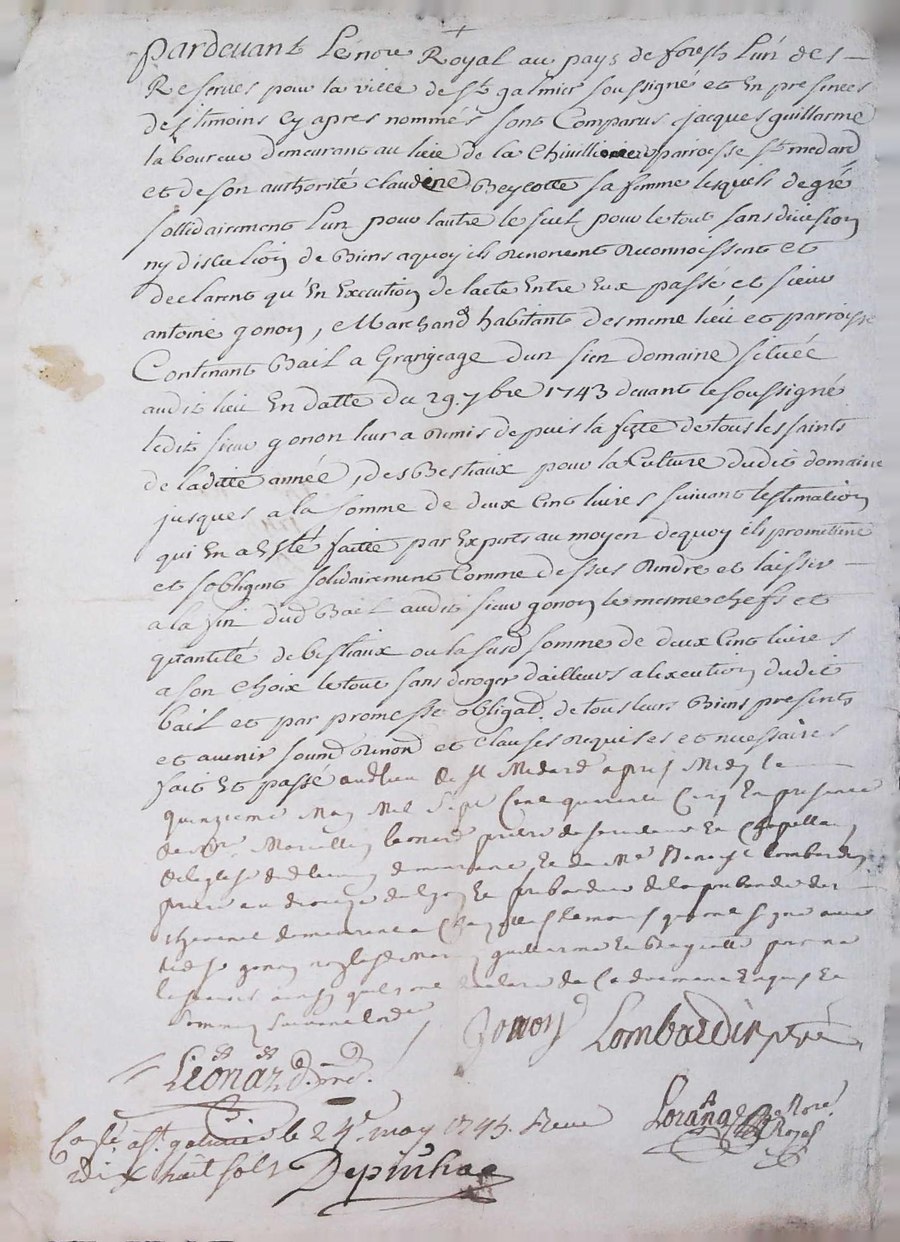 pardevant Le nore Royal au pays de forests L'un des
Reserués pour la ville de St galmier soussigné et En presences
des témoins Cy apres nommés sont Comparus jacques guillarme
laboureur demeurant au lieu de la parroesse St medard
et de son authorité claudine Beyotte sa femme lesquels de gré
sollidairement L'un pour lautre le seul pour le tout sans division
ny discution de Biens aquoy ils Renoncent Reconnoissent et
declarent qu'En Execution de lacte Entre Eux passé et sieur
antoine gonon, Marchand habitant des meme lieu et parroisse
Contenant Bail a Grangeage dun sien domaine situeé
audit lieu En datte du 29. 7bre 1743 devant le soussigné
ledit sieur gonon leur a Remis depuis la fete de tous les saints
de laditte année, des Bestiaux pour la Culture dudit domaine
jusques a la somme de deux Cent livres suivant lestimation
qui En a Esté faitte par Experts au moyen dequoy ils promettent
et sobligent solidairement Comme dessus Rendre et laisser
a la fin dud Bail audit sieur gonon le mesme chefs et
quantité de bestiaux ou la susd somme de deux Cent livres
a son Choix le tout sans deroger d'ailleurs a lexecution dudit
bail et par promesse obligad. de tous leurs Biens presents
et avenir soumd Renond et clauses Requises et necessaires
fait Et passé audlieu de St Medard apres Midy le
quinzieme May Mil Sept Cent quarente Cinq En presence
de Leonard pretre Chapellain
de leglise demeurant Et de Me Lombardin
pretre au dioceze de
demeurant a temoins qui ont signé avec
led sr gonon guillarme Et Beyotte pour ne
le scavoir ainsy qu'ils ont declaré de Ce Enquis Et

Gonon Lombardin ptre
Leonard. pre.
Lorange Nore Royal
St galmier le 24e. may 1745. Receu
dix huit sols Depinhac